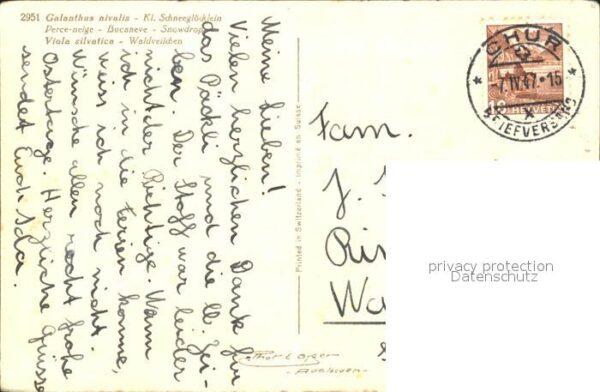 2951 Galanthus nivalis - Kl. Schneeglöcklein
Perce-neige - Bucaneve - Snowdrop
Viola silvatica - Waldveilchen
Meine Lieben!
Vielen herzlichen Dank für
das Päckli und die ll. Zei-
len. Der Stoff war leider
nicht der Richtige. Wann
ich in die Ferien komme,
weiss ich noch nicht.
Wünsche allen recht frohe
Ostertage. Herzliche Grüsse
sendet Euch Ida.
Printed in Switzerland - Imprimé en Suisse
CHUR
7.IV.47.-15
BRIEFVERSAND
10 HELVETIA
Fam.
J.
privacy protection
Datenschutz